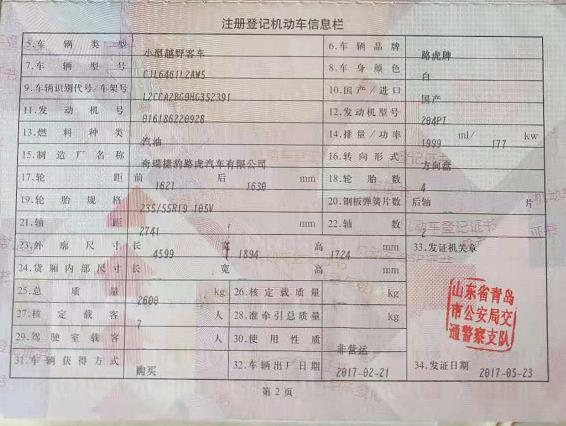 注册登记机动车信息栏
5.车辆类型 小型越野客车 6.车辆品牌 路虎牌
7.车辆型号 CJL6461L2AW5 8.车身颜色 白
9.车辆识别代号/车架号 L2CCA2BG0HG352391 10.国产/进口 国产
11.发动机号 016186220928 12.发动机型号 204PT
13.燃料种类 汽油 14.排量/功率 1999 ml/ 177 kw
15.制造厂名称 奇瑞捷豹路虎汽车有限公司 16.转向形式 方向盘
17.轮距 前 1621 后 1630 mm 18.轮胎数 4
19.轮胎规格 235/55R19 105V 20.钢板弹簧片数 后轴 片
21.轴距 2741 mm 22.轴数 2
23.外廓尺寸 长 4599 宽 1894 高 1724 mm 33.发证机关章
24.货厢内部尺寸 长 宽 高 mm
25.总质量 2600 kg 26.核定载质量 kg
27.核定载客 7 人 28.准牵引总质量 kg
29.驾驶室载客 人 30.使用性质 非营运
31.车辆获得方式 购买 32.车辆出厂日期 2017-02-21 34.发证日期 2017-05-23
山东省青岛
市公安局交
通警察支队
第2页